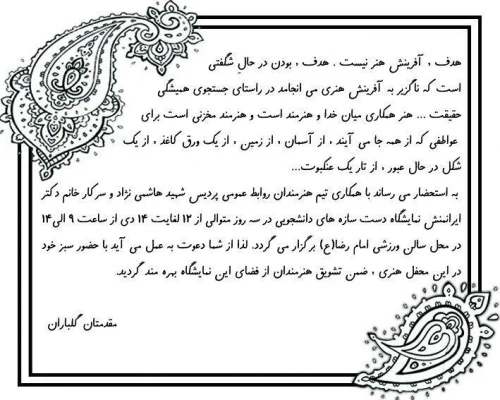 هدف ، آفرینش هنر نیست . هدف ، بودن در حال شگفتی
است که ناگزیر به آفرینش هنری می انجامد در راستای جستجوی همیشگی
حقیقت ... هنر همکاری میان خدا و هنرمند است و هنرمند مخزنی است برای
عواطفی که از همه جا می آیند ، از آسمان ، از زمین ، از یک ورق کاغذ ، از یک
شکل در حال عبور ، از تار یک عنکبوت...
به استحضار می رساند با همکاری تیم هنرمندان روابط عمومی پردیس شهید هاشمی نژاد و سرکار خانم دکتر
ایرانمنش نمایشگاه دست سازه های دانشجویی در سه روز متوالی از ۱۲ لغایت ۱۴ دی از ساعت ۹ الی ۱۴
در محل سالن ورزشی امام رضا(ع) برگزار می گردد. لذا از شما دعوت به عمل می آید با حضور سبز خود
در این محفل هنری ، ضمن تشویق هنرمندان از فضای این نمایشگاه بهره مند گردید.
مقدمتان گلباران